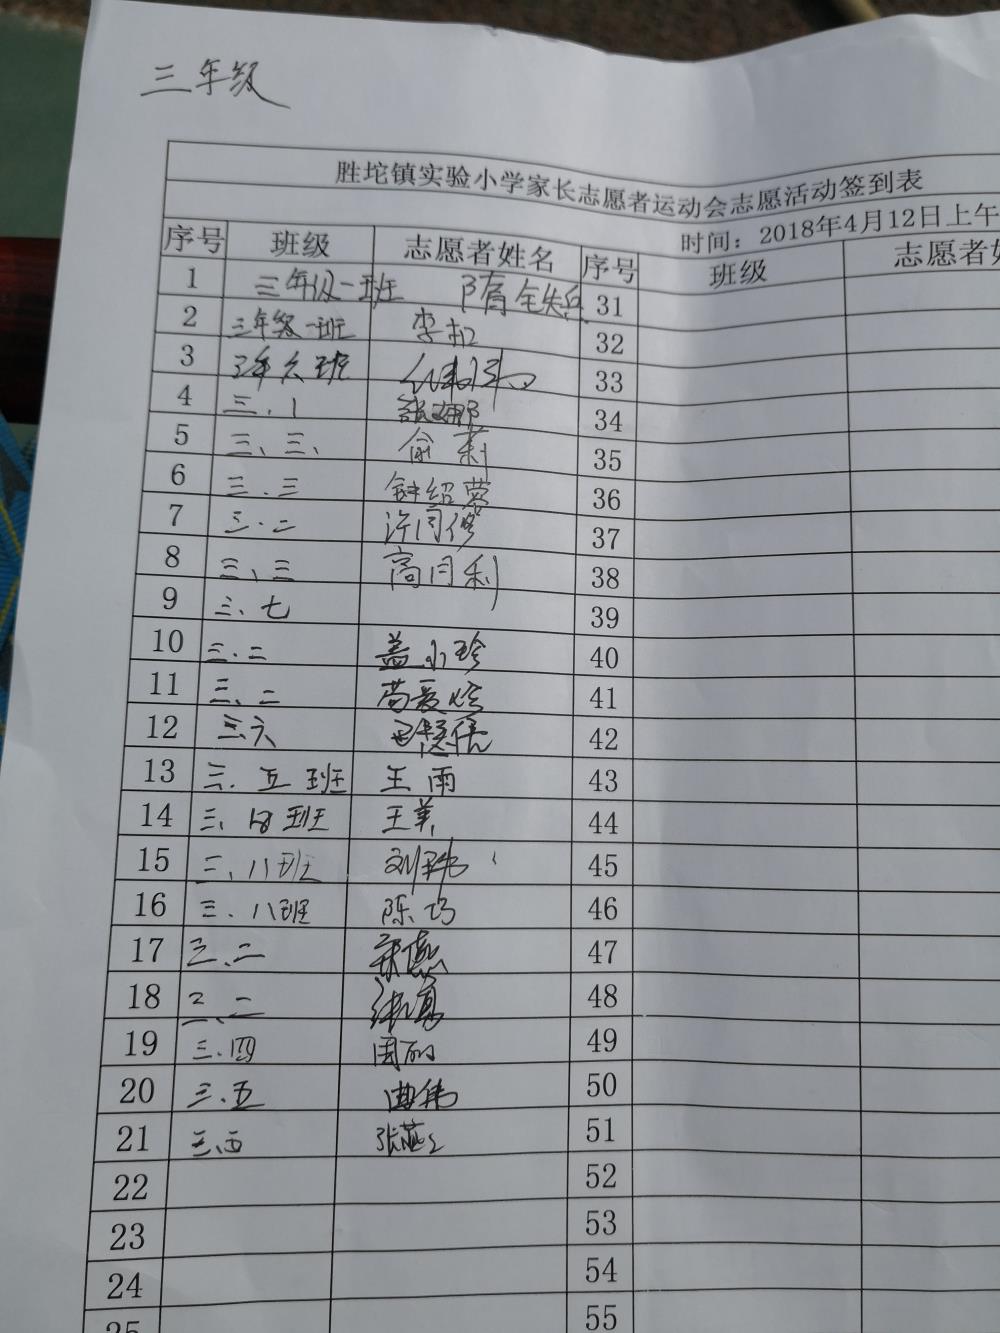 三年级
胜坨镇实验小学家长志愿者运动会志愿活动签到表
时间：2018年4月12日上午
序号 班级 志愿者姓名 序号 班级 志愿者姓
1 三年级一班 隋全兵 31
2 三年级一班 李红 32
3 三年六班 33
4 三.1 张娜 34
5 三、三、 俞莉 35
6 三.三 钟绍荣 36
7 三.二 许同修 37
8 三、三 高同利 38
9 三.七 39
10 三.二 盖小珍 40
11 三、二 苟爱玲 41
12 三六 42
13 三.五班 王雨 43
14 三、四班 王美 44
15 三、八班 刘玮 45
16 三.八班 陈巧 46
17 三、二 宋燕 47
18 48
19 三.四 周丽 49
20 三.五 曲伟 50
21 三.西 张燕 51
22 52
23 53
24 54
25 55